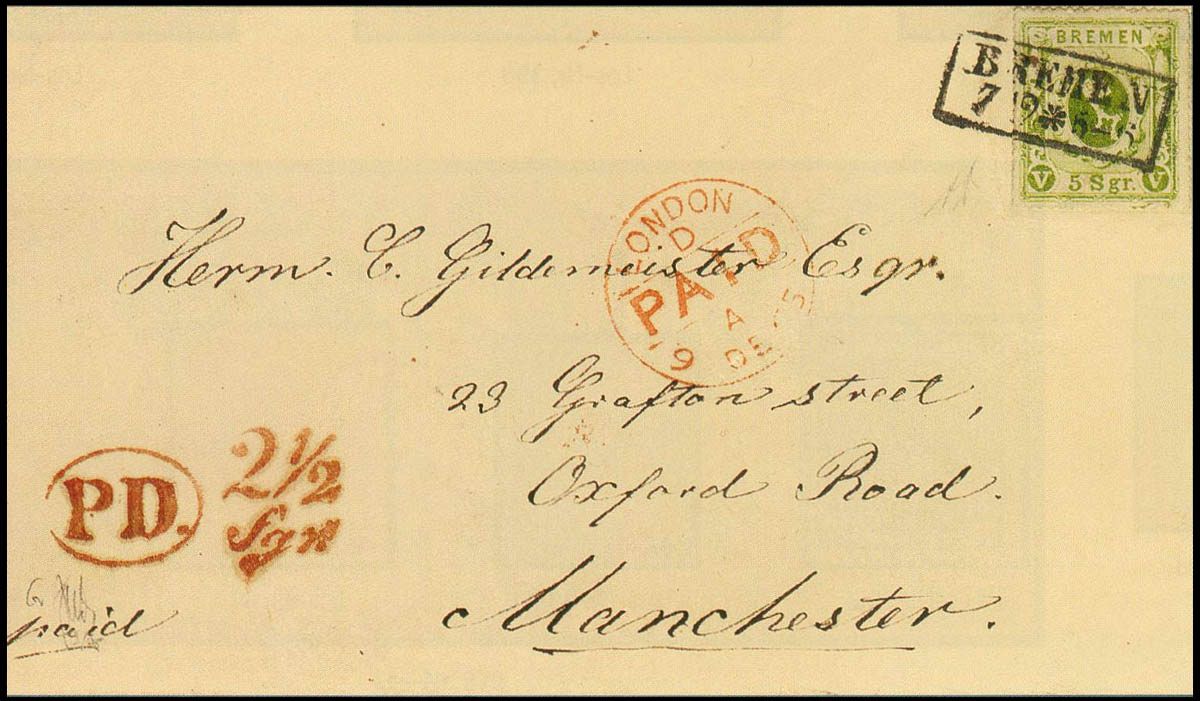 BREMEN
5 Sgr.
V V
BREMEN
7 12 * 5-6
LONDON
D
PAID
A
9 DE 5
Herm. C. Gildemeister Esqr.
23 Grafton street,
Oxford Road.
Manchester.
PD.
2½
Sgr
paid